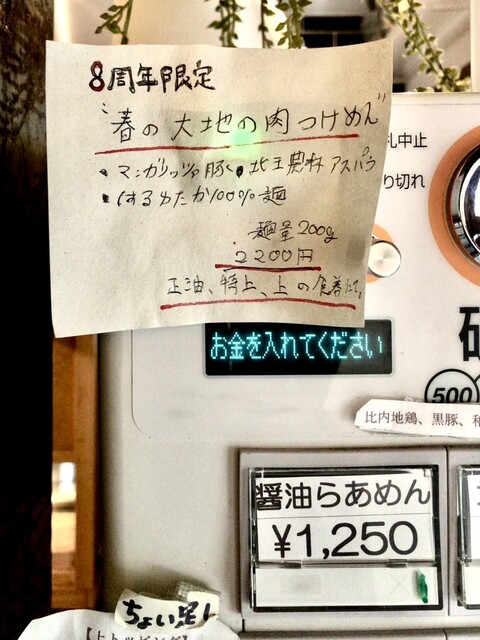 8周年限定
"春の大地の肉つけめん"
・マンガリッツァ豚・北王農林アスパラ
・はるゆたか100%麺
麺量200g
2200円
正油、特上、上の食券にて。
中止
り切れ
お金を入れてください
500
比内地鶏、黒豚、
醤油らあめん
¥1,250
ちょい足し